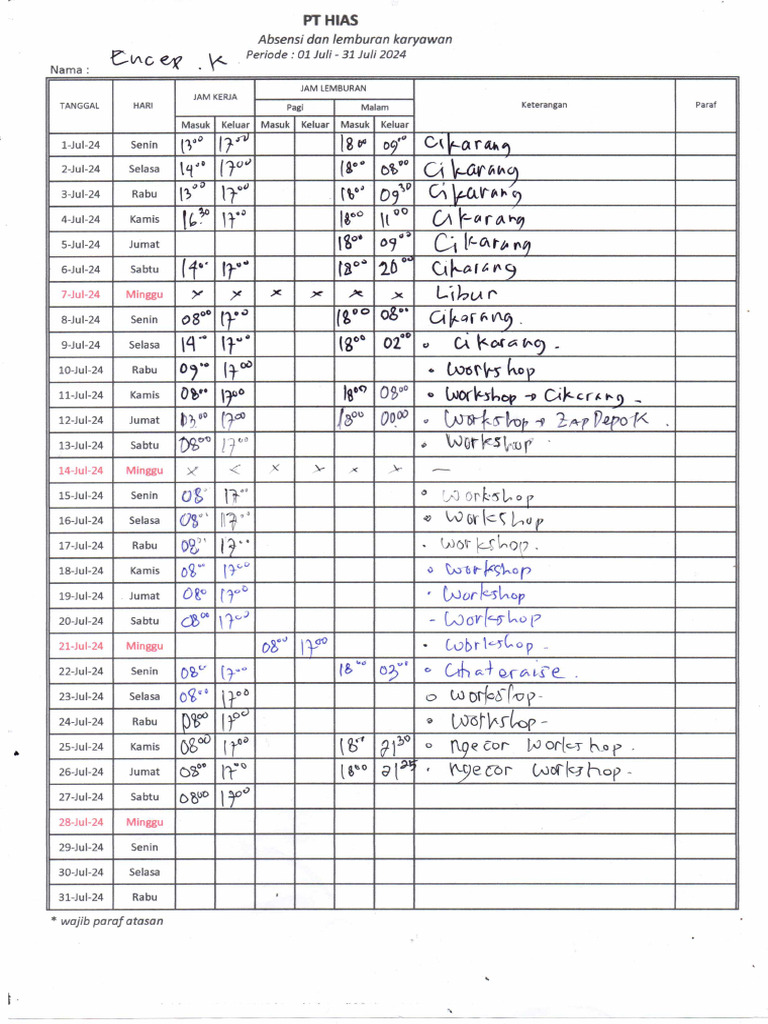 PT HIAS
Absensi dan lemburan karyawan
Periode : 01 Juli - 31 Juli 2024
Nama : Encep . K
TANGGAL HARI JAM KERJA JAM LEMBURAN Keterangan Paraf
Pagi Malam
Masuk Keluar Masuk Keluar Masuk Keluar
1-Jul-24 Senin 13⁰⁰ 17⁰⁰ 18⁰⁰ 09⁰⁰ Cikarang
2-Jul-24 Selasa 14⁰⁰ 17⁰⁰ 18⁰⁰ 08⁰⁰ Cikarang
3-Jul-24 Rabu 13⁰⁰ 17⁰⁰ 18⁰⁰ 09³⁰ Cikarang
4-Jul-24 Kamis 16.³⁰ 17⁰⁰ 18⁰⁰ 11⁰⁰ Cikarang
5-Jul-24 Jumat 18⁰⁰ 09⁰⁰ Cikarang
6-Jul-24 Sabtu 14⁰⁰ 17⁰⁰ 18⁰⁰ 20⁰⁰ Cikarang
7-Jul-24 Minggu x x x x x x Libur
8-Jul-24 Senin 08⁰⁰ 17⁰⁰ 18⁰⁰ 08⁰⁰ Cikarang.
9-Jul-24 Selasa 14⁰⁰ 17⁰⁰ 18⁰⁰ 02⁰⁰ • Cikarang.
10-Jul-24 Rabu 09⁰⁰ 17⁰⁰ • Workshop
11-Jul-24 Kamis 08⁰⁰ 17⁰⁰ 18⁰⁰ 08⁰⁰ • Workshop → Cikarang -
12-Jul-24 Jumat 17⁰⁰ 18⁰⁰ 00.⁰⁰ • Workshop → Zap Depok .
13-Jul-24 Sabtu 08⁰⁰ 17⁰⁰ • Workshop
14-Jul-24 Minggu x x x x x x —
15-Jul-24 Senin 08⁰⁰ 17⁰⁰ • Workshop
16-Jul-24 Selasa 08⁰⁰ 17⁰⁰ • Workshop
17-Jul-24 Rabu 08⁰⁰ 17⁰⁰ • Workshop.
18-Jul-24 Kamis 08⁰⁰ 17⁰⁰ • Workshop
19-Jul-24 Jumat 08⁰⁰ 17⁰⁰ • Workshop
20-Jul-24 Sabtu 08⁰⁰ 17⁰⁰ - Workshop
21-Jul-24 Minggu 08⁰⁰ 17⁰⁰ • Workshop-
22-Jul-24 Senin 08⁰⁰ 17⁰⁰ 18⁰⁰ 03⁰⁰ • Chateraise.
23-Jul-24 Selasa 08⁰⁰ 17⁰⁰ • Workshop-
24-Jul-24 Rabu 08⁰⁰ 17⁰⁰ • Workshop-
25-Jul-24 Kamis 08⁰⁰ 17⁰⁰ 18⁰⁰ 21³⁰ • Ngecor Workshop.
26-Jul-24 Jumat 08⁰⁰ 17⁰⁰ 18⁰⁰ 21²⁵ • Ngecor Workshop-
27-Jul-24 Sabtu 08⁰⁰ 17⁰⁰
28-Jul-24 Minggu
29-Jul-24 Senin
30-Jul-24 Selasa
31-Jul-24 Rabu
* wajib paraf atasan